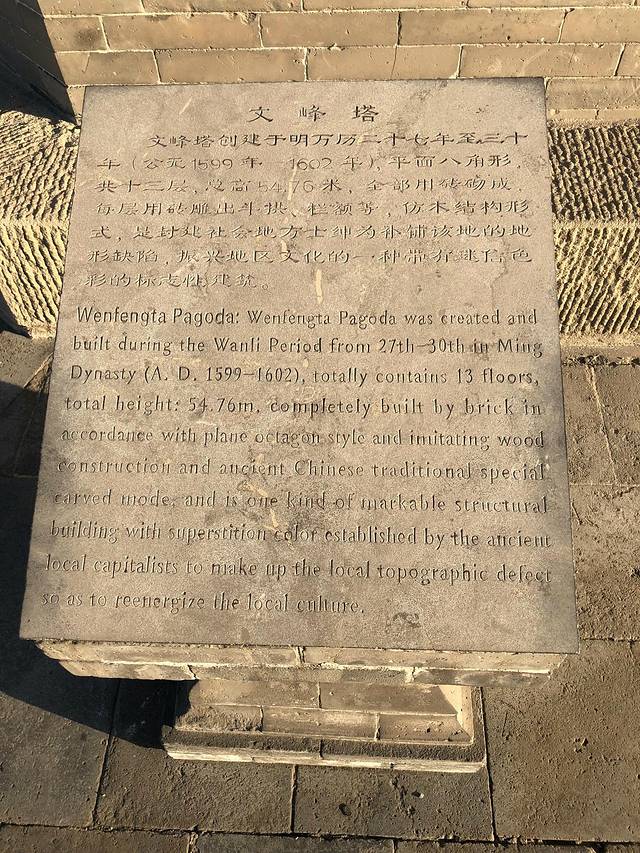 文峰塔
文峰塔创建于明万历二十七年至三十
年（公元1599年—1602年），平面八角形，
共十三层，总高54.76米，全部用砖砌成，
每层用砖雕出斗拱、栏额等，仿木结构形
式，是封建社会地方士绅为补铺该地的地
形缺陷，振兴地区文化的一种带有迷信色
彩的标志性建筑。
Wenfengta Pagoda: Wenfengta Pagoda was created and
built during the Wanli Period from 27th—30th in Ming
Dynasty (A. D. 1599—1602), totally contains 13 floors,
total height: 54.76m, completely built by brick in
accordance with plane octagon style and imitating wood
construction and ancient Chinese traditional special
carved mode, and is one kind of markable structural
building with superstition color established by the ancient
local capitalists to make up the local topographic defect
so as to reenergize the local culture.